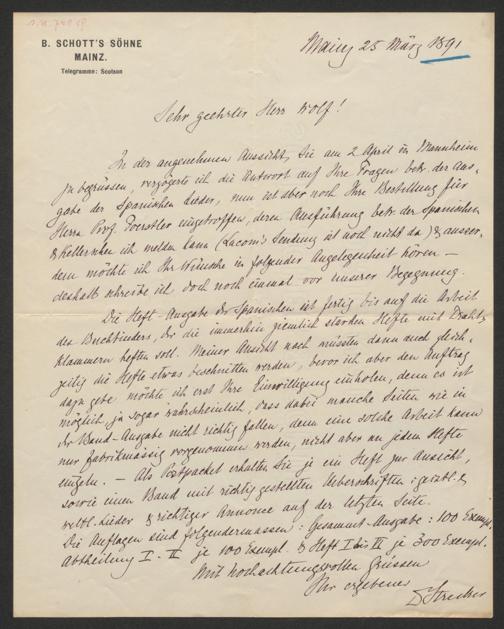 B. SCHOTT'S SÖHNE
MAINZ.
Telegramme: Scotson
Mainz 25 März 1891
Sehr geehrter Herr Wolf!
In der angenehmen Aussicht, Sie am 2 April in Mannheim
zu begrüssen, verzögerte ich die Antwort auf Ihre Fragen betr. der Aus-
gabe der Spanischen Lieder, nun ist aber noch Ihre Bestellung für
Herrn Prof. Foerstler eingetroffen, deren Ausführung betr. der Spanischen
& Keller'schen ich melden kann (Lacom's Sendung ist noch nicht da) & ausser-
dem möchte ich Ihre Wünsche in folgender Angelegenheit hören –
deshalb schreibe ich doch noch einmal vor unserer Begegnung.
Die Heft-Ausgabe der Spanischen ist fertig bis auf die Arbeit
des Buchbinders, der die immerhin ziemlich starken Hefte mit Draht-
klammern heften soll. Meiner Ansicht nach müssten dann auch gleich-
zeitig die Hefte etwas beschnitten werden, bevor ich aber den Auftrag
dazu gebe möchte ich erst Ihre Einwilligung einholen, denn es ist
möglich, ja sogar wahrscheinlich, dass dabei manche Seiten wie in
der Band-Ausgabe nicht richtig fallen, denn eine solche Arbeit kann
nur fabrikmässig vorgenommen werden, nicht aber an jedem Hefte
einzeln. – Als Postpacket erhalten Sie je ein Heft zur Ansicht,
sowie einen Band mit richtig gestellten Ueberschriften: geistl. &
weltl. Lieder & richtiger Annonce auf der letzten Seite.
Die Auflagen sind folgendermassen: Gesammt-Ausgabe: 100 Exempl.
Abtheilung I. II je 100 Exempl. & Heft I bis je 300 Exempl.
Mit hochachtungsvollen Grüssen
Ihr ergebener
Strecker